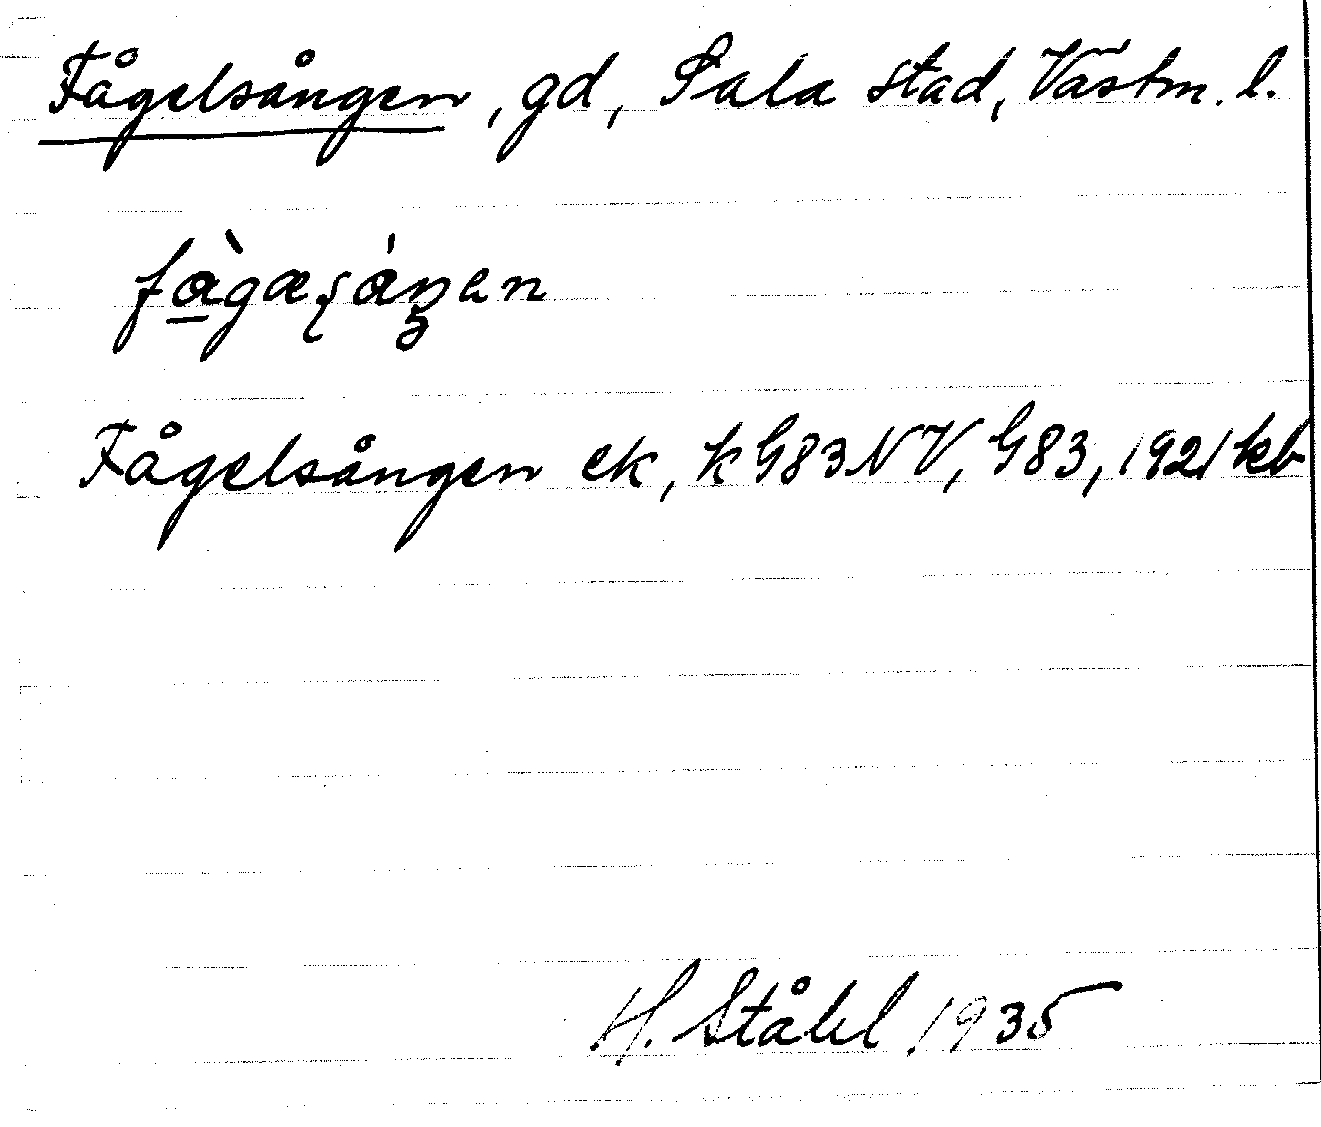 Fågelsången, gd, Sala stad, Västm. l.
fàgæʂáŋen
Fågelsången ek, k G83NV, G83, 1921 kb
H. Ståhl 1935